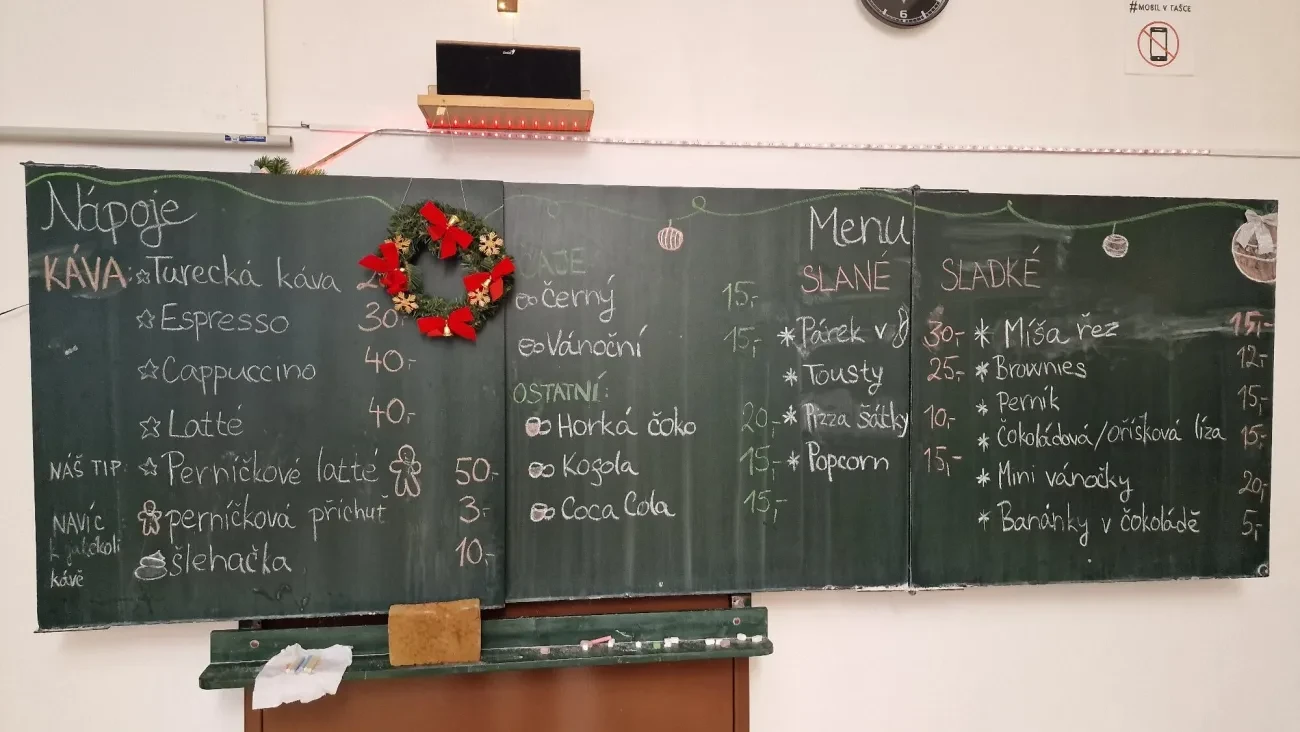 #MOBIL V TAŠCE
Nápoje
KÁVA: Turecká káva
Espresso 30,-
Cappuccino 40,-
Latté 40,-
NÁŠ TIP: Perníčkové latté 50,-
NAVÍC perníčková příchuť 3,-
šlehačka 10,-
kávě
ČAJE
černý 15,-
Vánoční 15,-
OSTATNÍ:
Horká čoko 20,-
Kozola 15,-
Coca Cola 15,-
Menu
SLANÉ
Párek v 30,-
Tousty 25,-
Pizza šátky 10,-
Popcorn 15,-
SLADKÉ
Míša řez 15,-
Brownies 12,-
Perník 15,-
Čokoládová/oříšková líza 15,-
Mini vánočky 20,-
Banánky v čokoládě 5,-